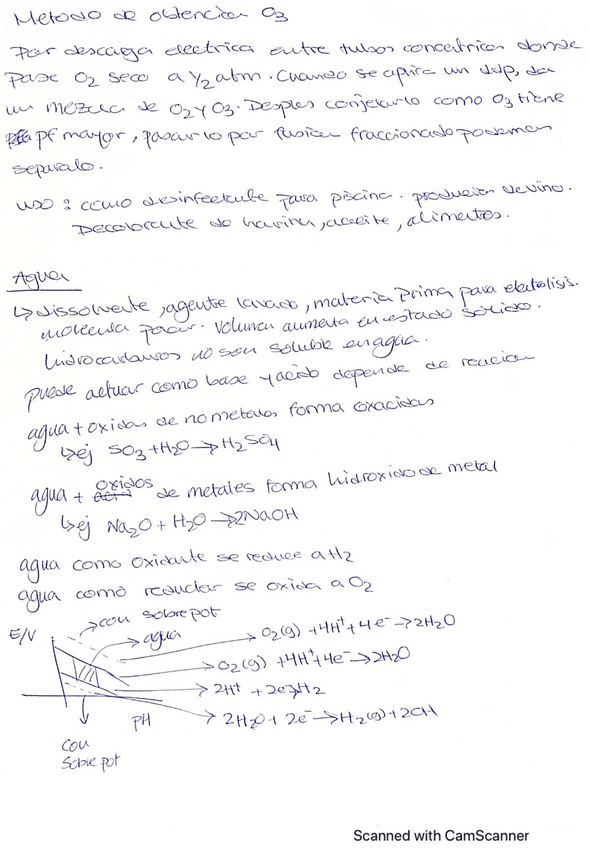 Metodo de obtencion O3
Por descaga electrica entre tubos concentricos donde
Pase O2 seco a 1/2 atm. Cuando se aplica un ddp, da
un mezcla de O2 y O3. Despues conjelarlo como O3 tiene
pf mayor, pasarlo por fusion fraccionado podemos
separalo.
uso : como desinfectante para piscina. produccion de vino.
Decolorante de harina, aceite, alimentos.
Agua
↳ dissolvente, agente lavado, materia prima para electolisis.
molecula polar. Volumen aumenta en estado solido.
hidrocarburos no son soluble en agua.
puede actuar como base y acido depende de reaccion
agua + oxidos de no metales forma oxacidos
↳ ej SO3 + H2O → H2SO4
agua + oxidos de metales forma hidroxido de metal
↳ ej Na2O + H2O → 2NaOH
agua como oxidante se reduce a H2
agua como reductor se oxida a O2
E/V
con sobrepot
agua
→ O2(g) + 4H+ + 4e- → 2H2O
→ O2(g) + 4H+ + 4e- → 2H2O
→ 2H+ + 2e → H2
→ 2H2O + 2e- → H2(g) + 2OH
PH
con
sobrepot
Scanned with CamScanner